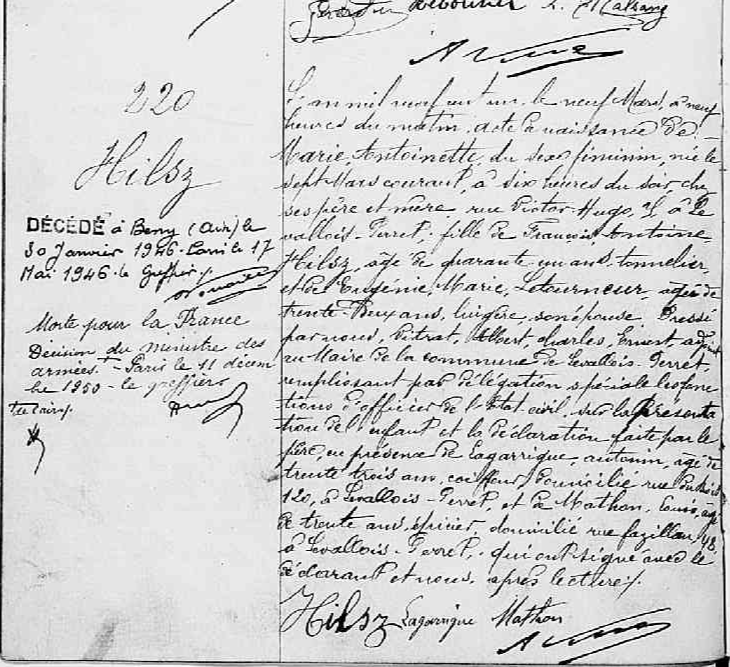 220
Hilsz
DÉCÉDÉ à Berry (Ain) le
30 Janvier 1946. Paris le 17
Mai 1946. le Greffier
Morte pour la France
Décision du ministre des
armées - Paris le 11 décem
bre 1950 - le greffier
L'an mil neuf cent un, le neuf Mars, à neuf
heures du matin, acte de naissance de
Marie, Antoinette, du sexe féminin, née le
sept Mars courant, à six heures du soir, chez
ses père et mère rue Victor Hugo, à Le
vallois-Perret, fille de François, Antoine
Hilsz, âgé de quarante un ans, tonnelier,
et de Eugénie, Marie, Letourneur, agée de
trente-deux ans, lingère, son épouse. Dressé
par nous, Pitrat, Albert, Charles, Ernest, adjoint
au Maire de la commune de Levallois-Perret
remplissant par délégation spéciale les fonc
tions d'officier de l'Etat civil, sur la présenta
tion de l'enfant et la déclaration faite par le
père, en présence de Lagarrigue, antonin, âgé de
trente trois ans, coiffeur, domicilié rue
120, à Levallois-Perret, et de Mathon, Louis, âgé
de trente ans, épicier, domicilié rue fazillau, 48,
à Levallois-Perret, qui ont signé avec le
déclarant et nous, après lecture.
Hilsz Lagarrigue Mathon